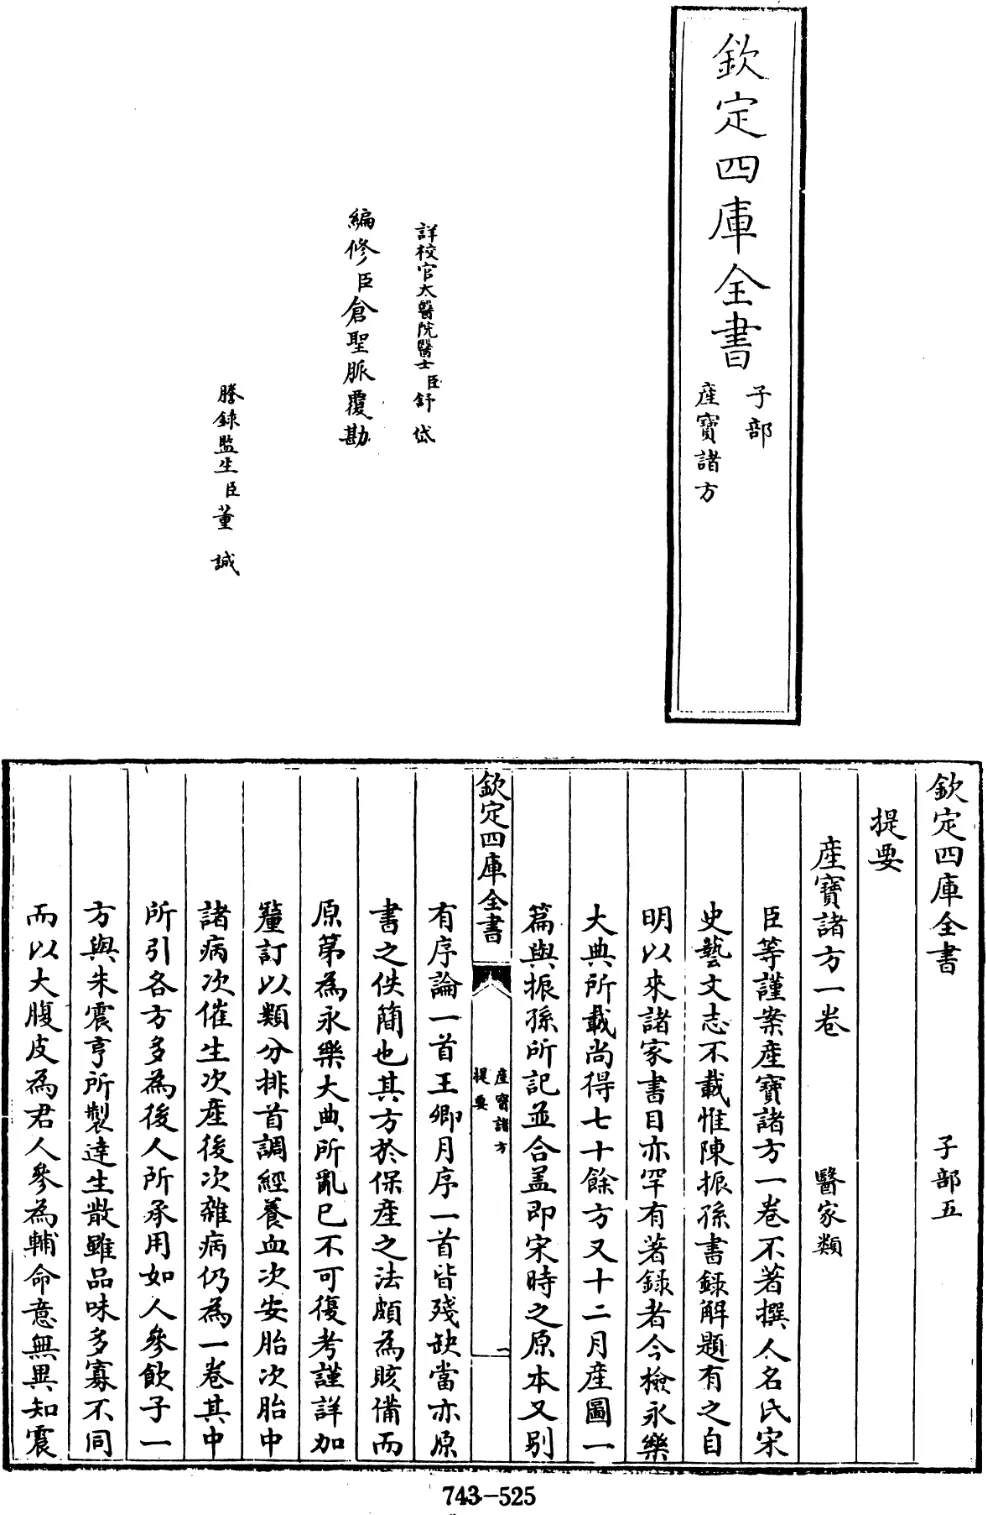 欽定四庫全書
子部
産寶諸方
詳校官太醫院醫士臣舒岱
編修臣倉聖脈覆勘
謄錄監生臣董誠
欽定四庫全書 子部五
提要
産寶諸方一卷 醫家類
臣等謹案産寶諸方一卷不著撰人名氏宋
史藝文志不載惟陳振孫書録解題有之自
明以來諸家書目亦罕有著録者今檢永樂
大典所載尚得七十餘方又十二月産圖一
篇與振孫所記並合盖即宋時之原本又别
欽定四庫全書
産寶諸方
提要
一
有序論一首王卿月序一首皆殘缺當亦原
書之佚簡也其方於保産之法頗為賅備而
原第為永樂大典所亂已不可復考謹詳加
釐訂以類分排首調經養血次安胎次胎中
諸病次催生次産後次雜病仍為一卷其中
所引各方多為後人所承用如人參飲子一
方與朱震亨所製達生散雖品味多寡不同
而以大腹皮為君人參為輔命意無異知震
743-525